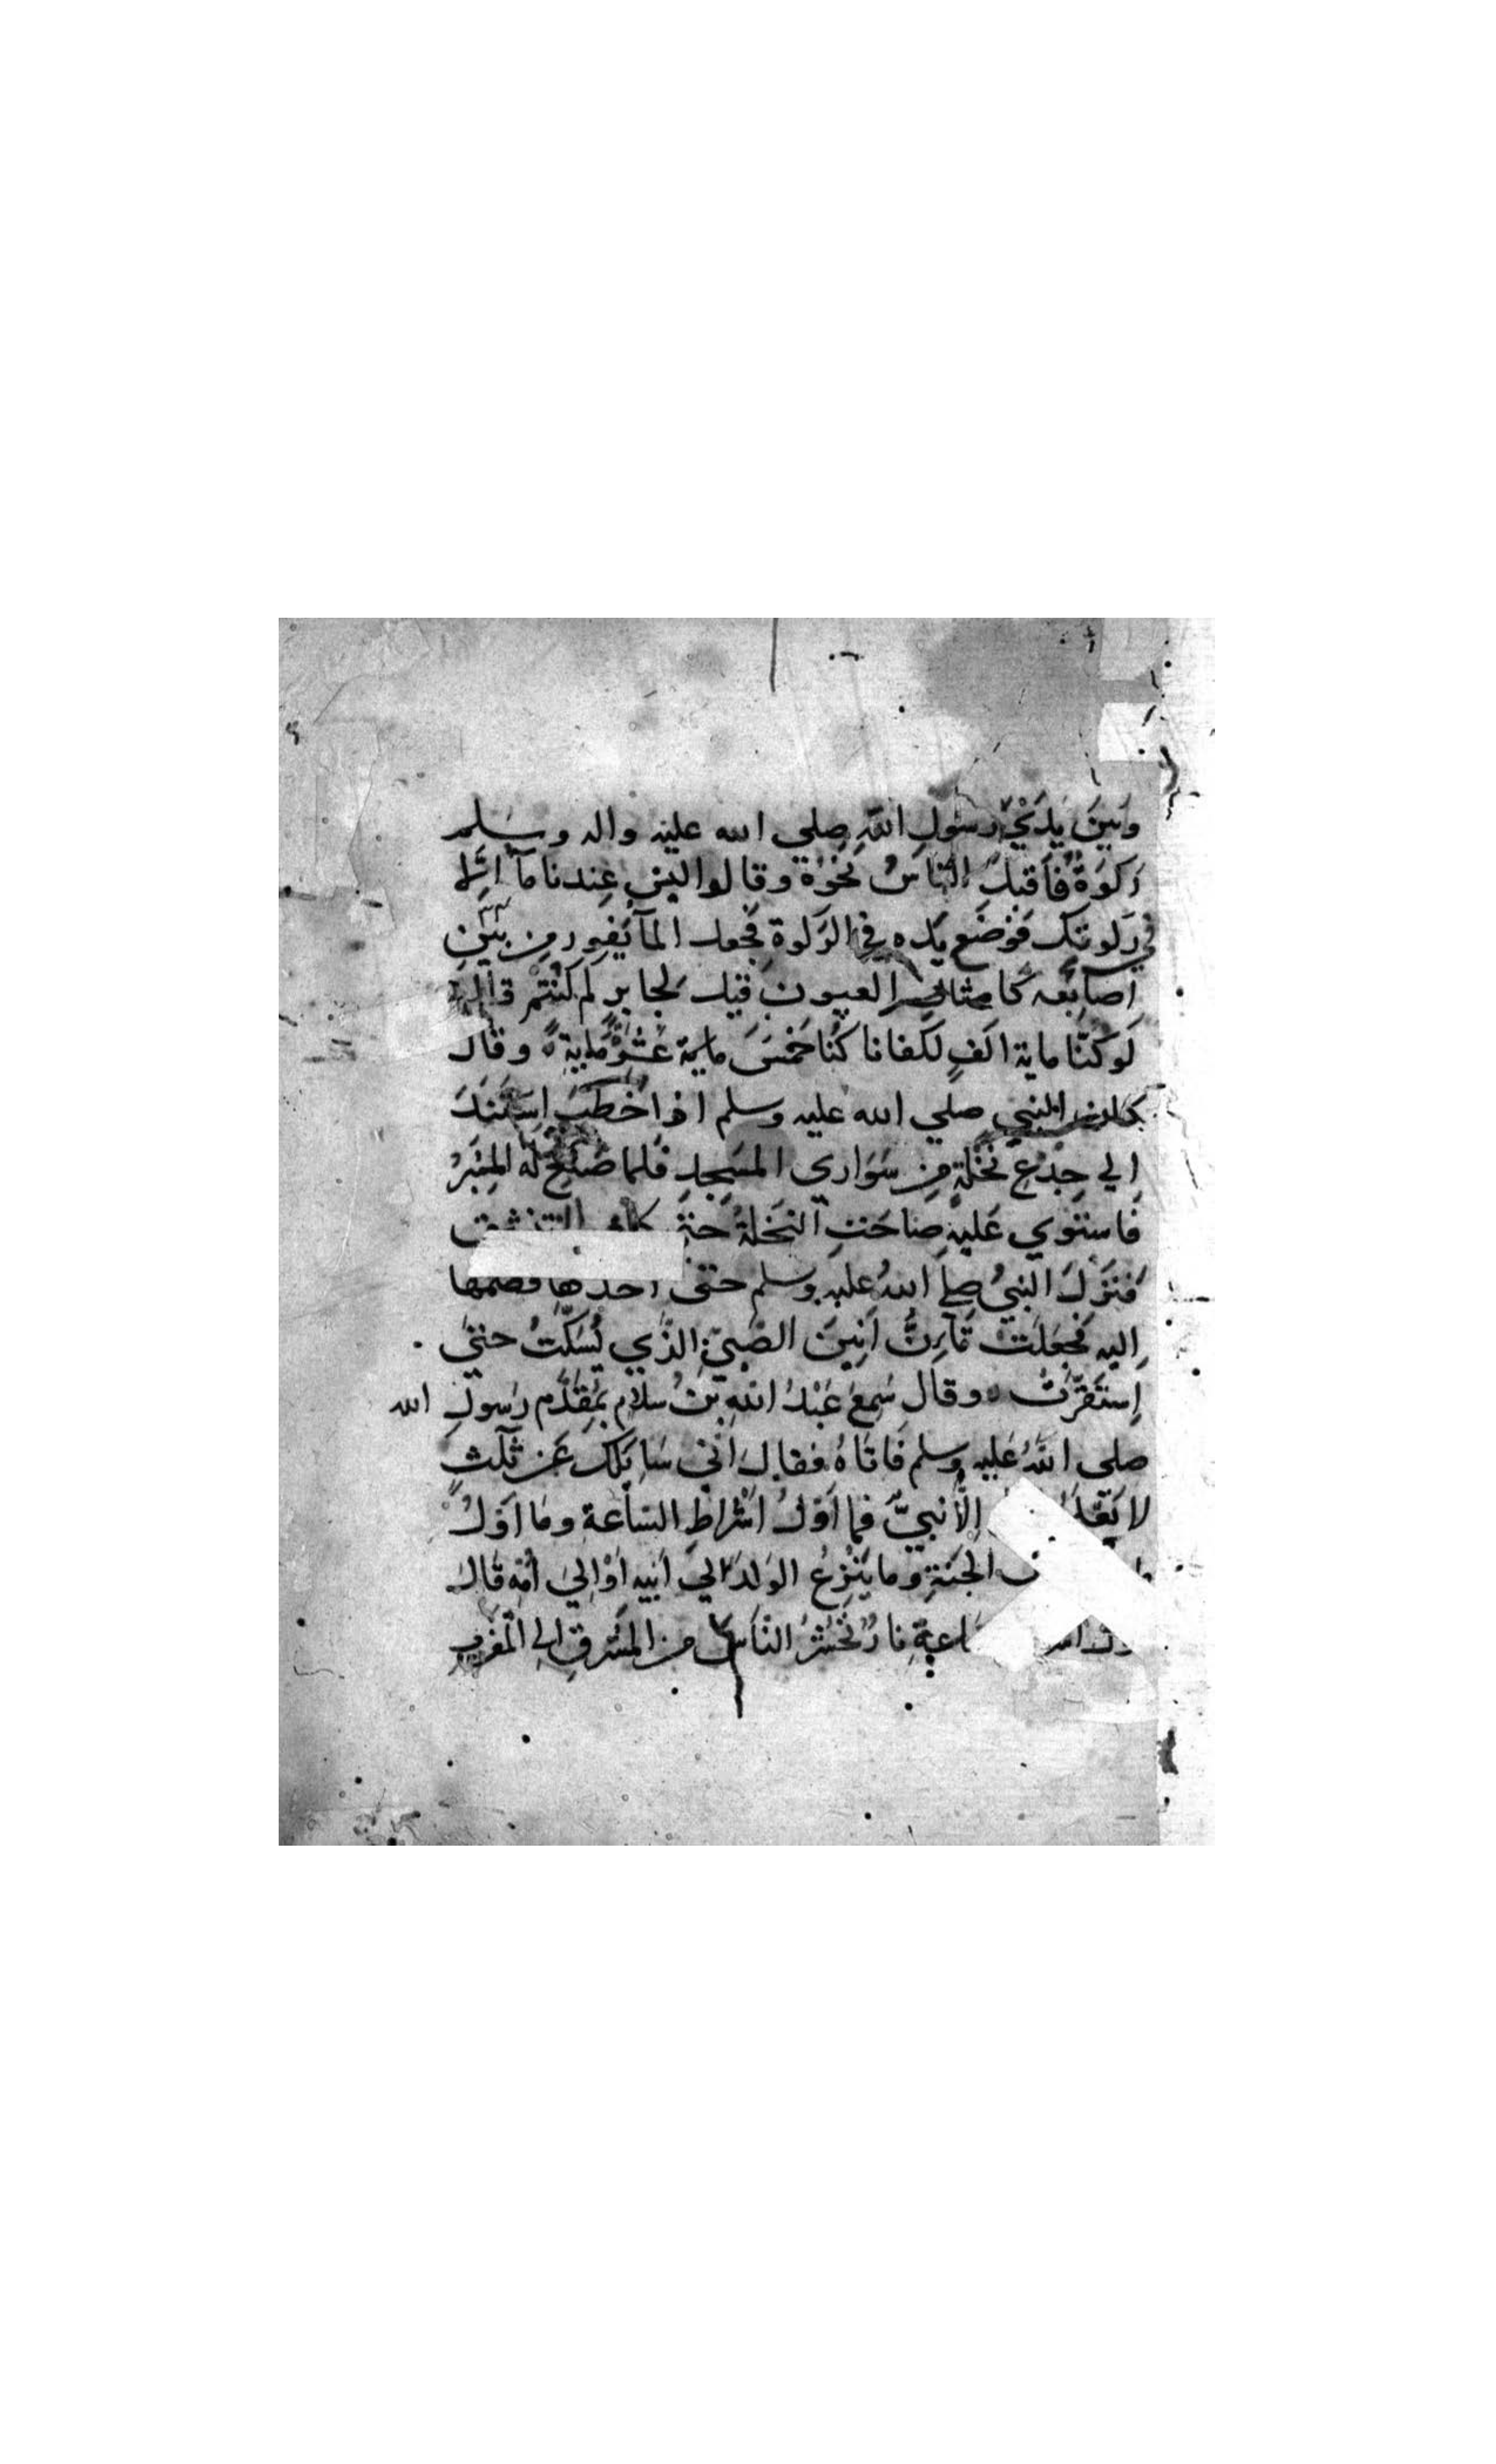 وَبَيْنَ يَدَيْ رَسُولِ اللّٰهِ صلي الله عليه واله وسلم
رَكْوَةٌ فَاَقْبَلَ النَّاسُ نَحْوَهُ وقالوا ليس عِندنا مآ اِلّا
في رَكوتِكَ فَوَضَع يَدَه في الرَكوة فَجَعل المآ يَفور مِن بَيْنِ
اَصابِعه كامثال العيون قيل لجابر كم كُنتُم قال
لَو كنّا ماية اَلفٍ لكفانا كُنا خمسَ عَشْرَةَ مايةً وقال
كان النبي صلي الله عليه وسلم اذا خَطَبَ اِستَنَدَ
اِلي جِذْعِ نَخْلَةٍ مِن سَوَاري المَسجِدِ فَلما صُنِعَ لَه المِنْبَرُ
فَاستَوي عَليهِ صَاحَتِ النَخلةُ حَتي كادت تنشق
فَنَزَلَ النبيُ صلي اللهُ عليه وسلم حتى اخذها فضمها
اِليه فَجَعَلَتْ تَاِنُّ اَنِينَ الصَّبِيّ الذّي يُسَكَّتُ حتيَ
اِستَقَرّت وقال سَمِعَ عَبْدُ اللهِ بنُ سلامٍ بمَقدَم رسول الله
صلى اللهُ عَليه وسلم فَاتَاهُ فقال اِنّي سَايلُكَ عَن ثَلٰثٍ
لا يَعْلَ اِلّا نبيٌّ فما اَوّلُ اَشْراطِ السّاعة ومَا اَوّلُ
الجَنةِ وما يَنْزِعُ الوَلَدَ اليَ اَبيه اَوْ اِليَ اُمّه قَالَ
نارٌ تَحْشُرُ النّاسَ من المَشرِقِ الي المَغرب